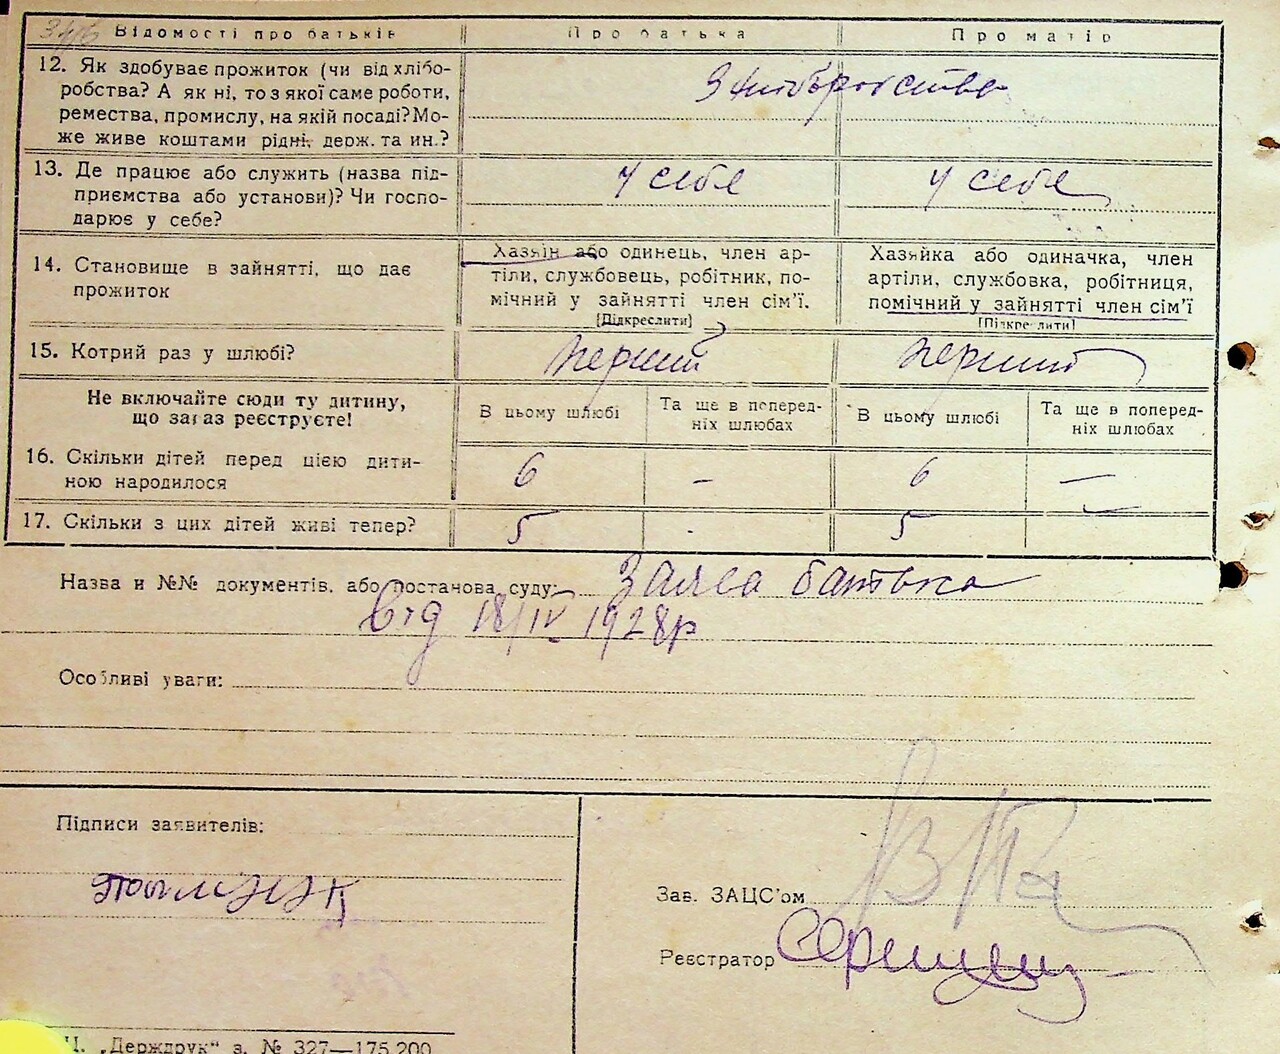 Відомості про батьків Про батька Про матір
12. Як здобуває прожиток (чи від хлібо-
робства? А як ні, то з якої саме роботи,
ремества, промислу, на якій посаді? Мо-
же живе коштами рідні, держ. та ин.?
З хліборобства
13. Де працює або служить (назва під-
приємства або установи)? Чи госпо-
дарює у себе?
у себе у себе
14. Становище в зайнятті, що дає
прожиток
Хазяїн або одинець, член ар-
тіли, службовець, робітник, по-
мічний у зайнятті член сім'ї.
[Підкреслити]
Хазяйка або одиначка, член
артіли, службовка, робітниця,
помічний у зайнятті член сім'ї
[Підкреслити]
15. Котрий раз у шлюбі? перший перший
Не включайте сюди ту дитину,
що зараз реєструєте!
В цьому шлюбі Та ще в поперед-
ніх шлюбах
В цьому шлюбі Та ще в поперед-
ніх шлюбах
16. Скільки дітей перед цією дити-
ною народилося
6 - 6 —
17. Скільки з цих дітей живі тепер? 5 - 5 —
Назва и №№ документів, або постанова суду: Заява батька
від 18/IV 1928р
Особливі уваги:
Підписи заявителів:
Зав. ЗАЦС'ом
Реєстратор
Ц. „Держдрук" з. № 327—175.200